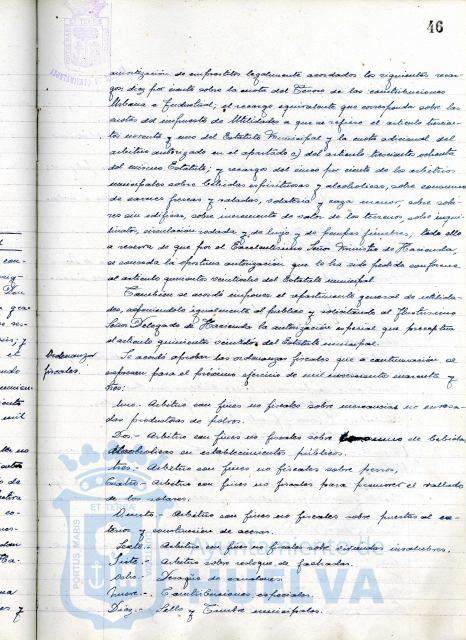 46
amortización de empréstitos legalmente acordados los siguientes recar-
gos; diez por ciento sobre la cuota del Tesoro de las contribuciones
Urbana e Industrial; el recargo equivalente que corresponda sobre las
cuotas del impuesto de Utilidades a que se refiere el artículo trescien-
tos noventa y uno del Estatuto Municipal y la cuota adicional del
arbitrio autorizado en el apartado c) del artículo trescientos ochenta
del mismo Estatuto; y recargos del cinco por ciento de los arbitrios
municipales sobre bebidas espirituosas y alcohólicas, sobre consumo
de carnes frescas y saladas, volatería y caza menor, sobre sola-
res sin edificar, sobre incremento de valor de los terrenos, sobre inqui-
linatos, circulación rodada y de lujo y de pompas fúnebres; todo ello
a reserva de que por el Excelentísimo Señor Ministro de Hacienda,
se conceda la oportuna autorización que le ha sido pedida conforme
al artículo quinientos veintidós del Estatuto municipal.
También se acordó imponer el repartimiento general de utilida-
des, exponiéndolo igualmente al público y solicitando del Ilustrísimo
Señor Delegado de Hacienda la autorización especial que preceptua
el artículo quinientos veintidós del Estatuto municipal.
Ordenanzas
fiscales.
Se acordó aprobar las ordenanzas fiscales que a continuación se
expresan para el próximo ejercicio de mil novecientos cuarenta y
tres:
Uno.- Arbitrio con fines no fiscales sobre mercancías no envasa-
das productoras de polvos.
Dos.- Arbitrio con fines no fiscales sobre consumo de bebidas
alcohólicas en establecimientos públicos.
Tres.- Arbitrio con fines no fiscales sobre perros.
Cuatro.- Arbitrio con fines no fiscales para promover el vallado
de los solares.
Quinto.- Arbitrio con fines no fiscales sobre puertas al ex-
terior y construcción de aceras.
Sexto.- Arbitrio con fines no fiscales sobre viviendas insalubres.
Siete.- Arbitrio sobre revoque de fachadas.
Ocho.-
Nueve.- Contribuciones especiales.
Diez.- Sello y Timbre municipales.
PORTUS MARIS
ET TERRAE
Ayuntamiento de